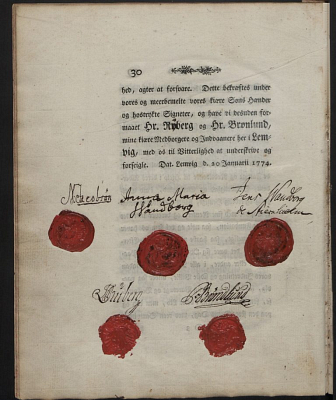 30
hed, agter at forsvare. Dette bekræftes under
vores og meerbemelte vores kiære Søns Hænder
og hostrykte Signeter, og have vi desuden for-
maaet Hr. Ryberg og Hr. Brønlund,
mine kiære Medborgere og Indvaanere her i Lem-
vig, med os til Vitterlighed at underskrive og
forsegle. Dat. Lemvig d. 20 Januarii 1774.
Anna Maria
Handborg
Jens Handborg
Ryberg
Brønlund